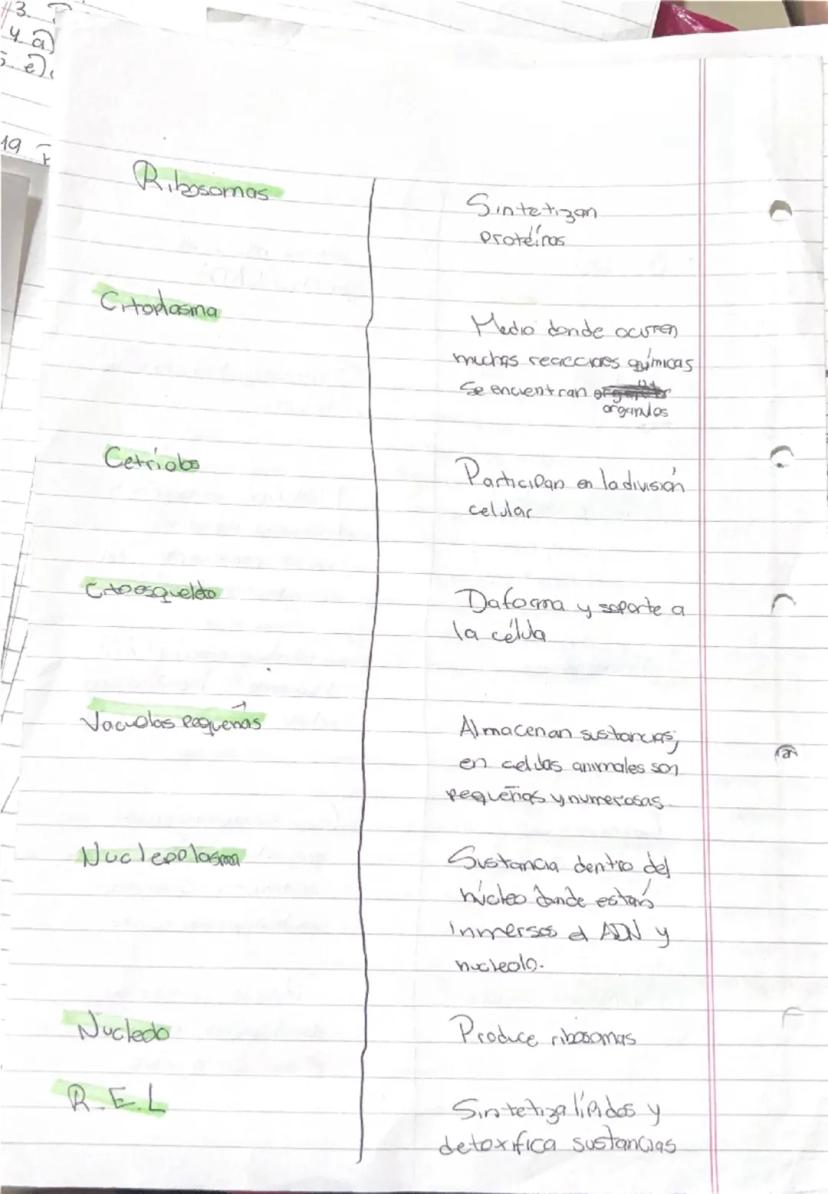 3.
4 a)
5 e)
19
Ribosomas
Sintetizan
proteínas
Citoplasma
Medio donde ocurren
muchas reacciones químicas
Se encuentran
organulos
Cetriolos
Participan en la división
celular
Citoesqueleto
Da forma y soporte a
la célula
Vacuolas pequeñas
Almacenan sustancias,
en celulas animales son
pequeñas y numerosas
Nucleoplasma
Sustancia dentro del
núcleo donde están
inmersos el ADN y
nucleolo.
Nucleolo
Produce ribosomas
R.E.L
Sintetiza lípidos y
detoxifica sustancias